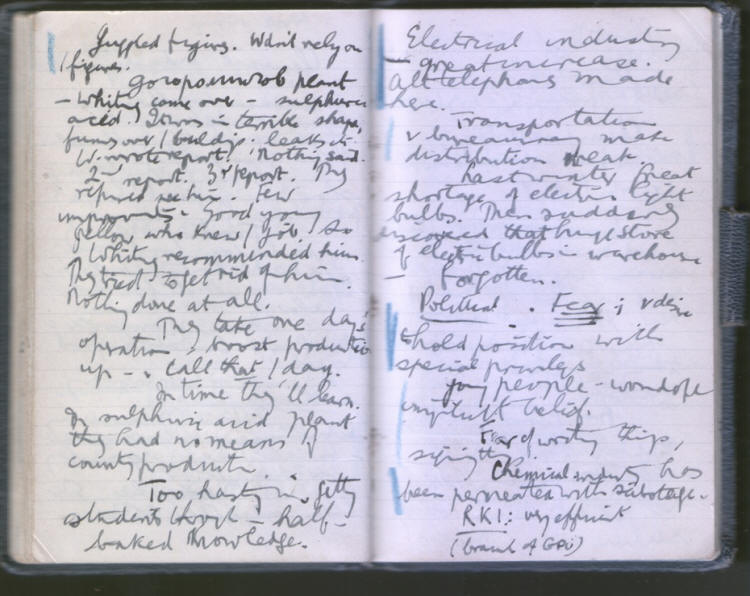 Juggled figures. Wdn't rely on
/ figures.
plant
— Whiting came over — sulphuric
acid. It was in terrible shape,
fumes over / buildgs. leaks etc.
W. wrote report. Nothing said.
2nd report. 3rd report. They
refused action. Few
improvements. Good young
fellow who knew / job. So
Whiting recommended him.
They tried to get rid of him.
Nothing done at all.
They take one day's
operation, boost production
up — & call that 1 day.
In time they'll learn.
In sulphuric acid plant
they had no means of
production
Too hasty in getting
students through — half-
baked knowledge.
Electrical industry
— great increase.
All telephones made
here.
Transportation
& bureaucracy make
distribution weak.
Last winter great
shortage of electric light
bulbs. Then suddenly
discovered that huge store
of electric bulbs in warehouse
— forgotten.
Political. Fear; & desire
to hold position with
special privileges
young people — wonderful
belief.
Fear of writing things,
signing things.
Chemical industry has
been permeated with sabotage.
RKI: very efficient
(branch of GPU)